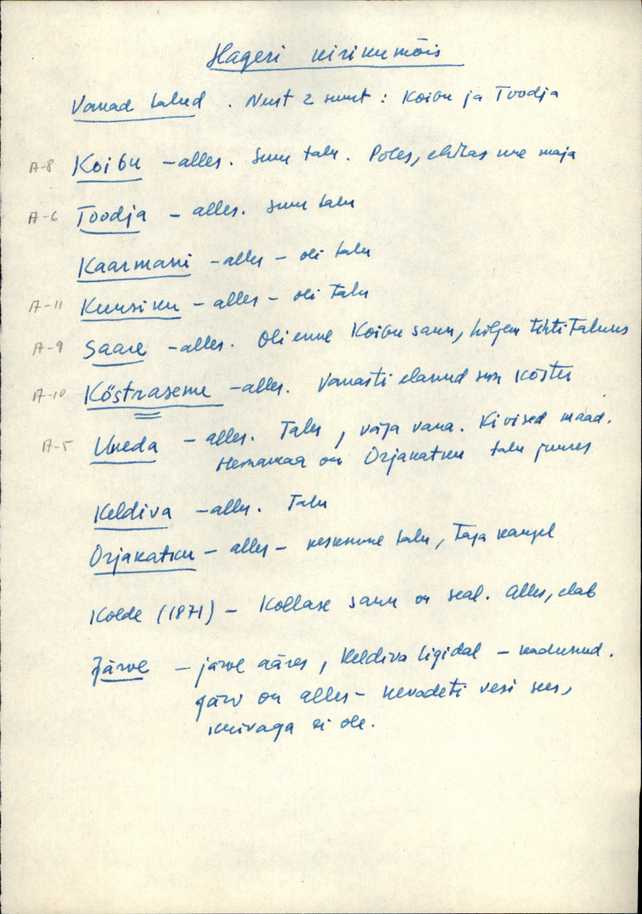 Hageri kirikumõis
Vanad talud. Neist 2 suurt: Koibu ja Toodja
A-8 Koibu – alles. Suur talu. Põles, ehitas uue maja
A-6 Toodja – alles. Suur talu
Kaarmani – alles – oli talu
A-11 Kuusiku – alles – oli talu
A-9 Saare – alles. Oli enne Koibu saun, hiljem tehti taluks
A-10 Köstriaseme – alles. Vanasti elanud siin köster
A-5 Uueda – alles. Talu, väga vana. Kivised maad.
Heinamaa on Orjakatku talu juures
Keldiva – alles. Talu
Orjakatku – alles – keskmine talu, Taga kangel
Kolde (1871) – Kollase saun on seal. Alles, elab
Järve – järve ääres, Keldiva ligidal – kadunud.
Järv on alles – kevadeti vesi sees,
kuivaga ei ole.